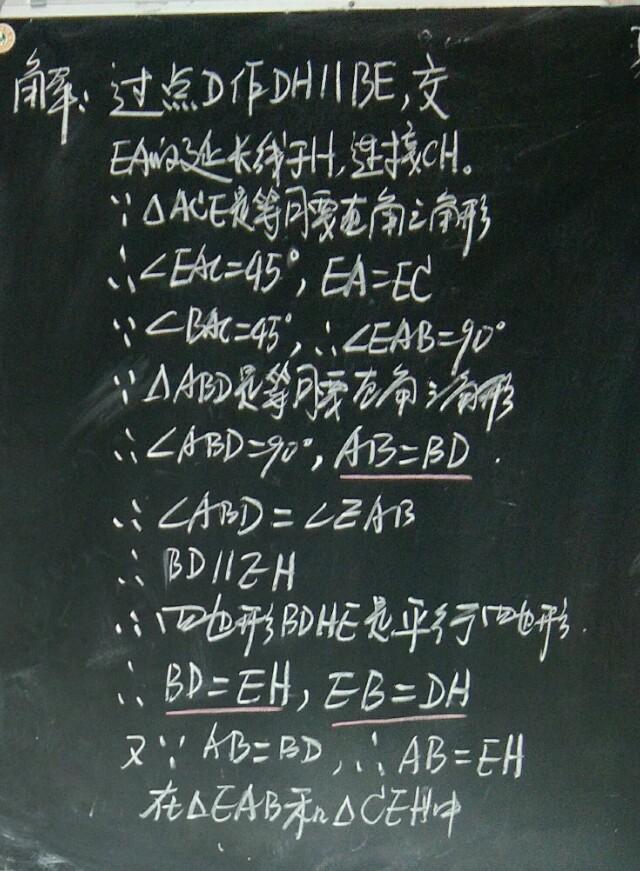 解：过点D作DH∥BE，交
EA的延长线于H，连接CH。
∵△ACE是等腰直角三角形
∴∠EAC=45°，EA=EC
∵∠BAC=45°，∴∠EAB=90°
∵△ABD是等腰直角三角形
∴∠ABD=90°，AB=BD．
∴∠ABD=∠EAB
∴BD∥EH
∴四边形BDHE是平行四边形．
∴BD=EH，EB=DH
又∵AB=BD，∴AB=EH
在△EAB和△CEH中